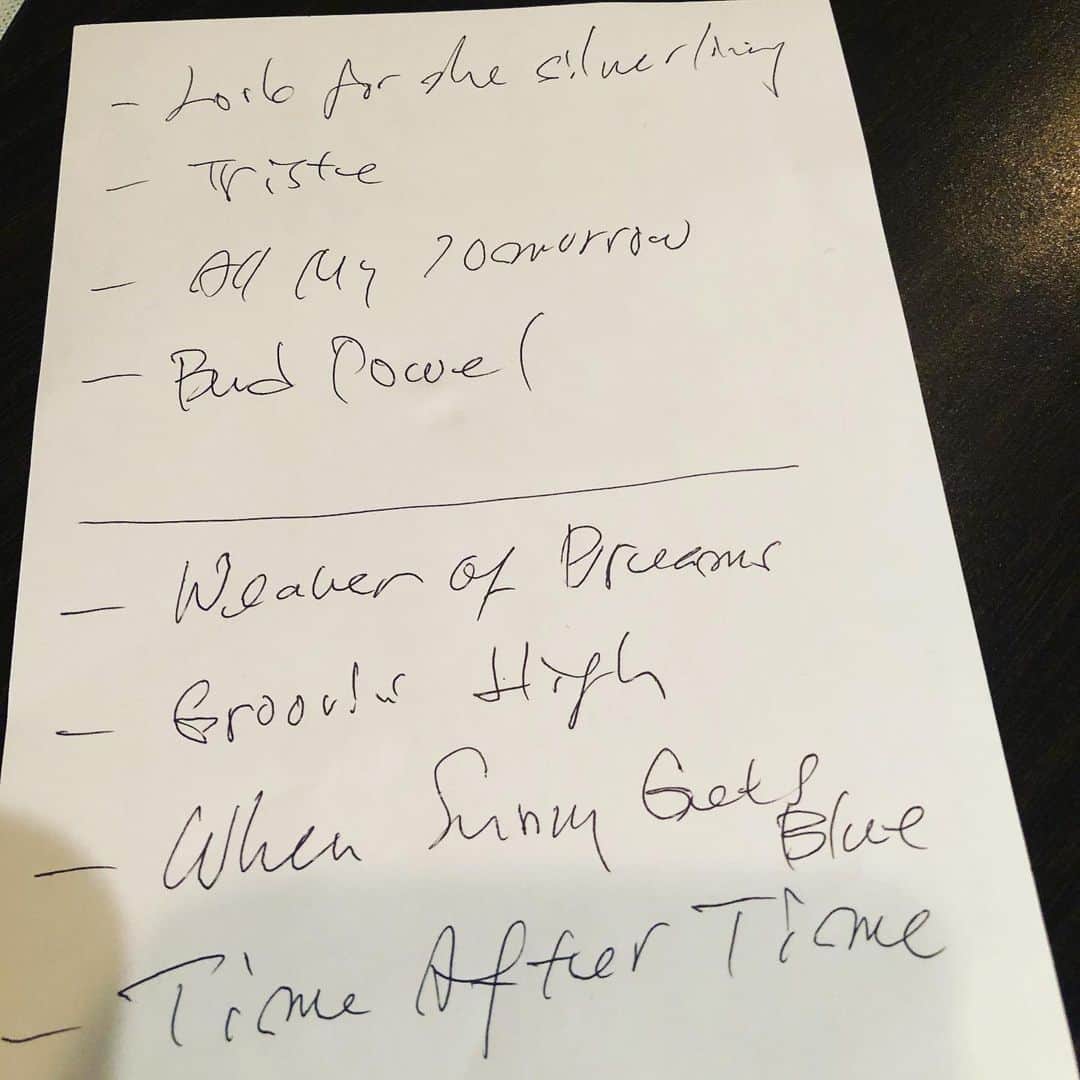 - Look for the silver lining
- Triste
- All My Tomorrow
- Bud Powel
- Weaver of Dreams
- Groovin High
- When Sunny Gets
Blue
- Time After Time